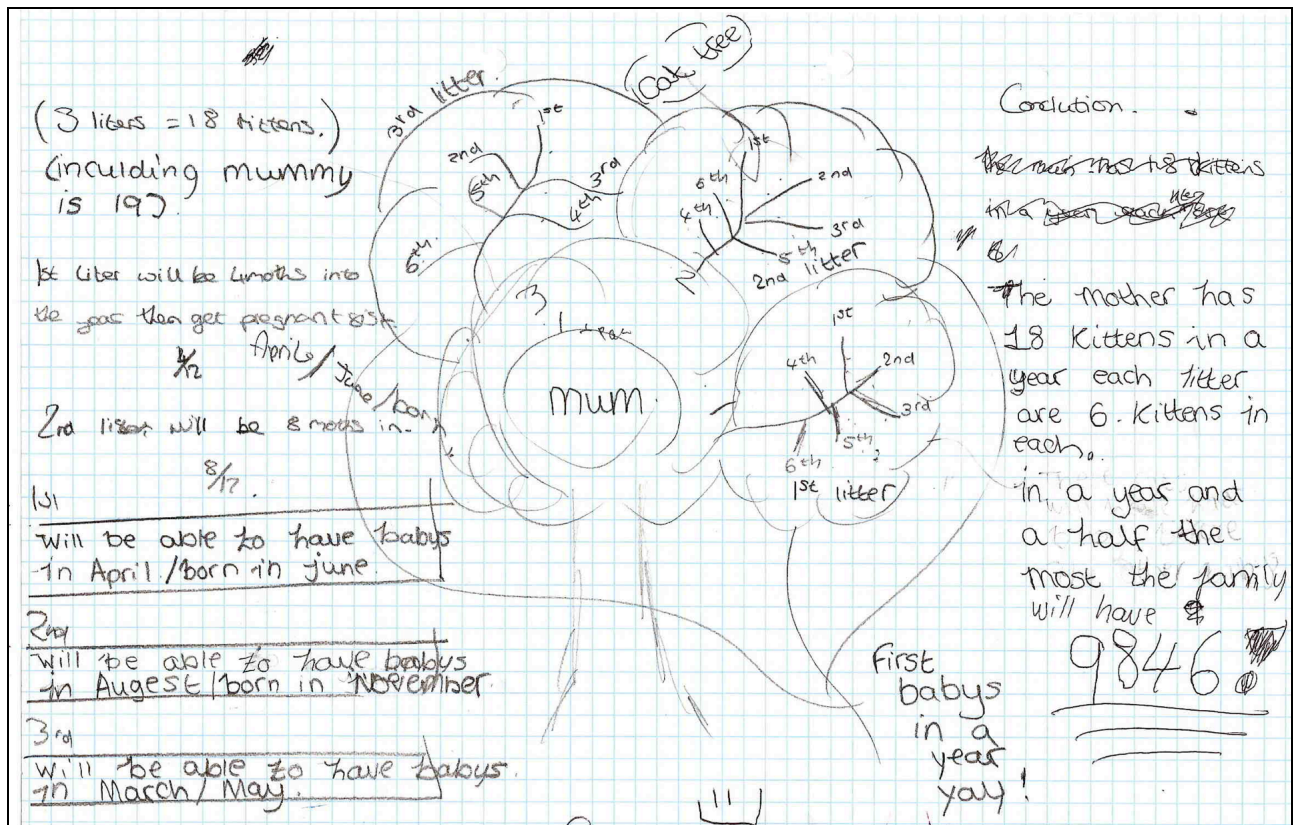 (3 liters = 18 kittens.)
(inculding mummy
is 19).
1st liter will be 4moths into
the year then get pregnant
4/12
April/June/born
2nd liter will be 8 moths in.
8/12.
1st
will be able to have babys
in April./born in june.
2nd
will be able to have babys
in Augest/born in November.
3rd
will be able to have babys.
in March/May.
(Cat tree)
3rd litter.
1st
2nd
3rd
4th
5th
6th
1st
2nd
3rd
4th
5th
6th
2
2nd litter
3
1
mum
1st
2nd
3rd
4th
5th
6th
1st litter
Conclution.
The mother has
18 Kittens in a
year each litter
are 6. Kittens in
each.
in a year and
a half the
most the family
will have
9846!
First
babys
in a
year
yay!